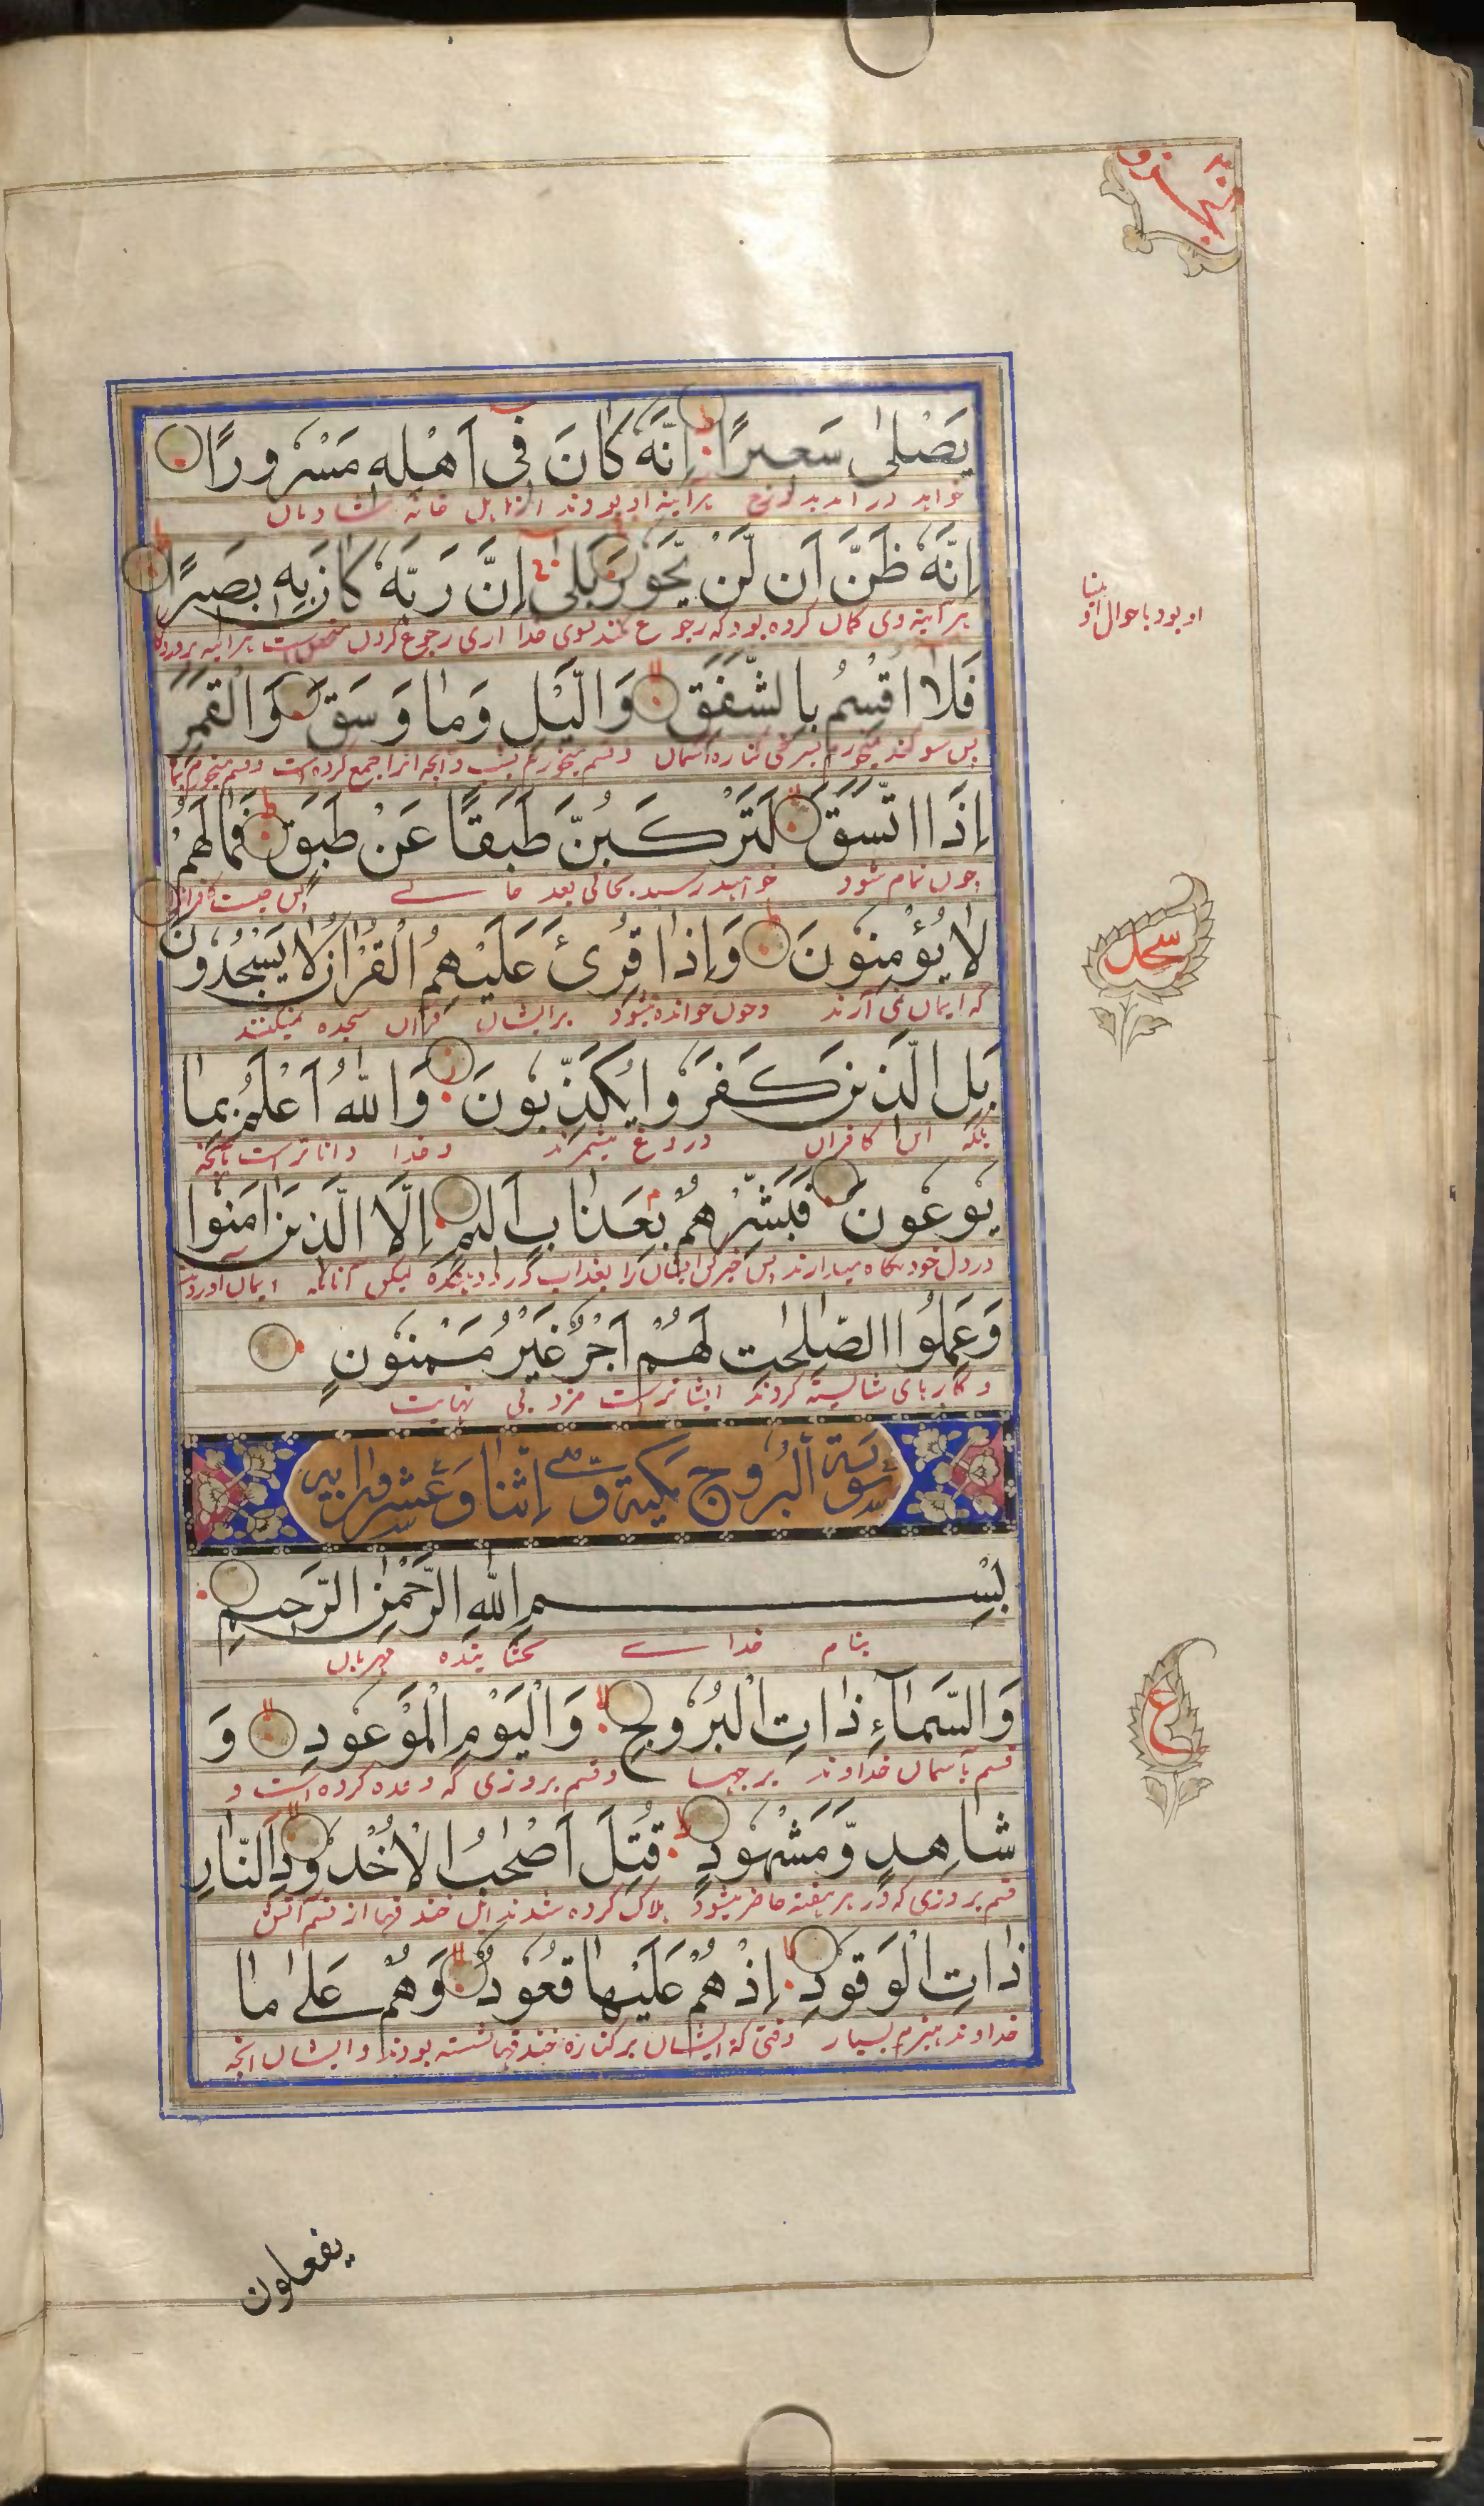 يَصْلٰى سَعِيرًا اِنَّهٗ كَانَ فِىْ اَهْلِهٖ مَسْرُورًا
خواهد در آمد بدوزخ هرآینه او بود در اهل خانه شادمان
اِنَّهٗ ظَنَّ اَنْ لَّنْ يَّحُوْرَ بَلٰى اِنَّ رَبَّهٗ كَانَ بِهٖ بَصِيرًا
هرآینه وی گمان کرده بود که رجوع نکند بسوی خدا آری رجوع کردن است هرآینه پروردگار
او بود باحوال او بینا
فَلَا اُقْسِمُ بِالشَّفَقِ وَالَّيْلِ وَمَا وَسَقَ وَالْقَمَرِ
پس سوگند میخورم بسرخی کناره آسمان و قسم میخورم بشب و آنچه آنرا جمع کرده است و قسم میخورم
اِذَا اتَّسَقَ لَتَرْكَبُنَّ طَبَقًا عَنْ طَبَقٍ فَمَا لَهُمْ
چون تمام شود خواهید رسید بحالی بعد حالے پس چیست کافران
لَا يُؤْمِنُوْنَ وَاِذَا قُرِئَ عَلَيْهِمُ الْقُرْاٰنُ لَا يَسْجُدُوْنَ
که ایمان نمی آرند و چون خوانده میشود برایشان قرآن سجده نمیکنند
سجده
بَلِ الَّذِيْنَ كَفَرُوْا يُكَذِّبُوْنَ وَاللّٰهُ اَعْلَمُ بِمَا
بلکه این کافران دروغ میشمرند و خدا داناتر است بآنچه
يُوْعُوْنَ فَبَشِّرْهُمْ بِعَذَابٍ اَلِيْمٍ اِلَّا الَّذِيْنَ اٰمَنُوْا
در دل خود نگاه میدارند پس خبر کن ایشان را بعذاب درد دهنده لیکن آنانکه ایمان آوردند
وَعَمِلُوا الصّٰلِحٰتِ لَهُمْ اَجْرٌ غَيْرُ مَمْنُوْنٍ
و کارهای شایسته کردند ایشانراست مزد بی نهایت
سورة البروج مكية وهي اثنا وعشرون اية
بِسْمِ اللّٰهِ الرَّحْمٰنِ الرَّحِيْمِ
بنام خداے بخشاینده مهربان
وَالسَّمَآءِ ذَاتِ الْبُرُوْجِ وَالْيَوْمِ الْمَوْعُوْدِ وَ
قسم بآسمان خداوند برجها و قسم بروزی که وعده کرده است و
ع
شَاهِدٍ وَّمَشْهُوْدٍ قُتِلَ اَصْحٰبُ الْاُخْدُوْدِ النَّارِ
قسم بروزی که در هر هفته حاضر میشود هلاک کرده شدند اهل خندقها از قسم آتش
ذَاتِ الْوَقُوْدِ اِذْ هُمْ عَلَيْهَا قُعُوْدٌ وَّهُمْ عَلٰى مَا
خداوند هیزم بسیار وقتی که ایشان بر کناره خندقها نشسته بودند و ایشان آنچه
يفعلون